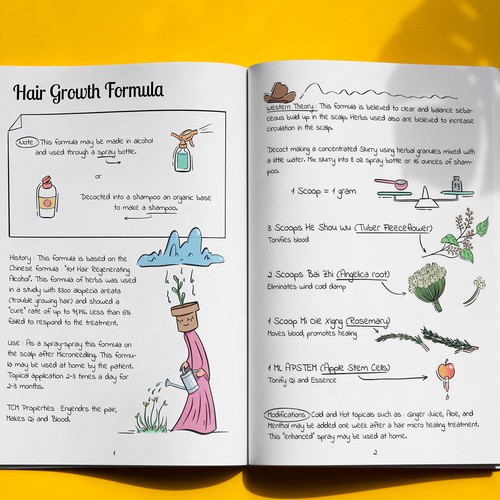 Hair Growth Formula
Note : This formula may be made in alcohol
and used through a spray bottle.
or
Decocted into a shampoo an organic base
to make a shampoo.
History : This formula is based on the
Chinese formula "101 Hair Regenerating
Alcohol". This formula of herbs was used
in a study with 8300 alopecia areata
(trouble growing hair) and showed a
"cure" rate of up to 97,9%. Less than 6%
failed to respond to the treatment.
Use : As a spray-spray this formula on
the scalp after Microneedling. This formu-
la may be used at home by the patient.
Topical application 2-3 times a day for
2-3 months.
TCM Properties : Engenders the hair,
Makes Qi and Blood.
1
Western Theory : This formula is believed to clear and balance seba-
ceous build up in the scalp. Herbs used also are believed to increase
circulation in the scalp.
Decoct making a concentrated Slurry using herbal granules mixed with
a little water. Mix slurry into 8 oz spray bottle or 16 ounces of sham-
poo.
1 Scoop = 1 gram
3 Scoops He Shou wu (Tuber Fleeceflower)
Tonifies blood
2 Scoops Bai Zhi (Angelica root)
Eliminates wind cold damp
1 Scoop Mi Die Xiang (Rosemary)
Moves blood, promotes healing
1 ML APSTEM (Apple Stem Cells)
Tonify Qi and Essence
Modifications : Cold and Hot topicals such as : Ginger Juice, Aloe, and
Menthol may be added one week after a hair micro healing treatment.
This "enhanced" spray may be used at home.
2